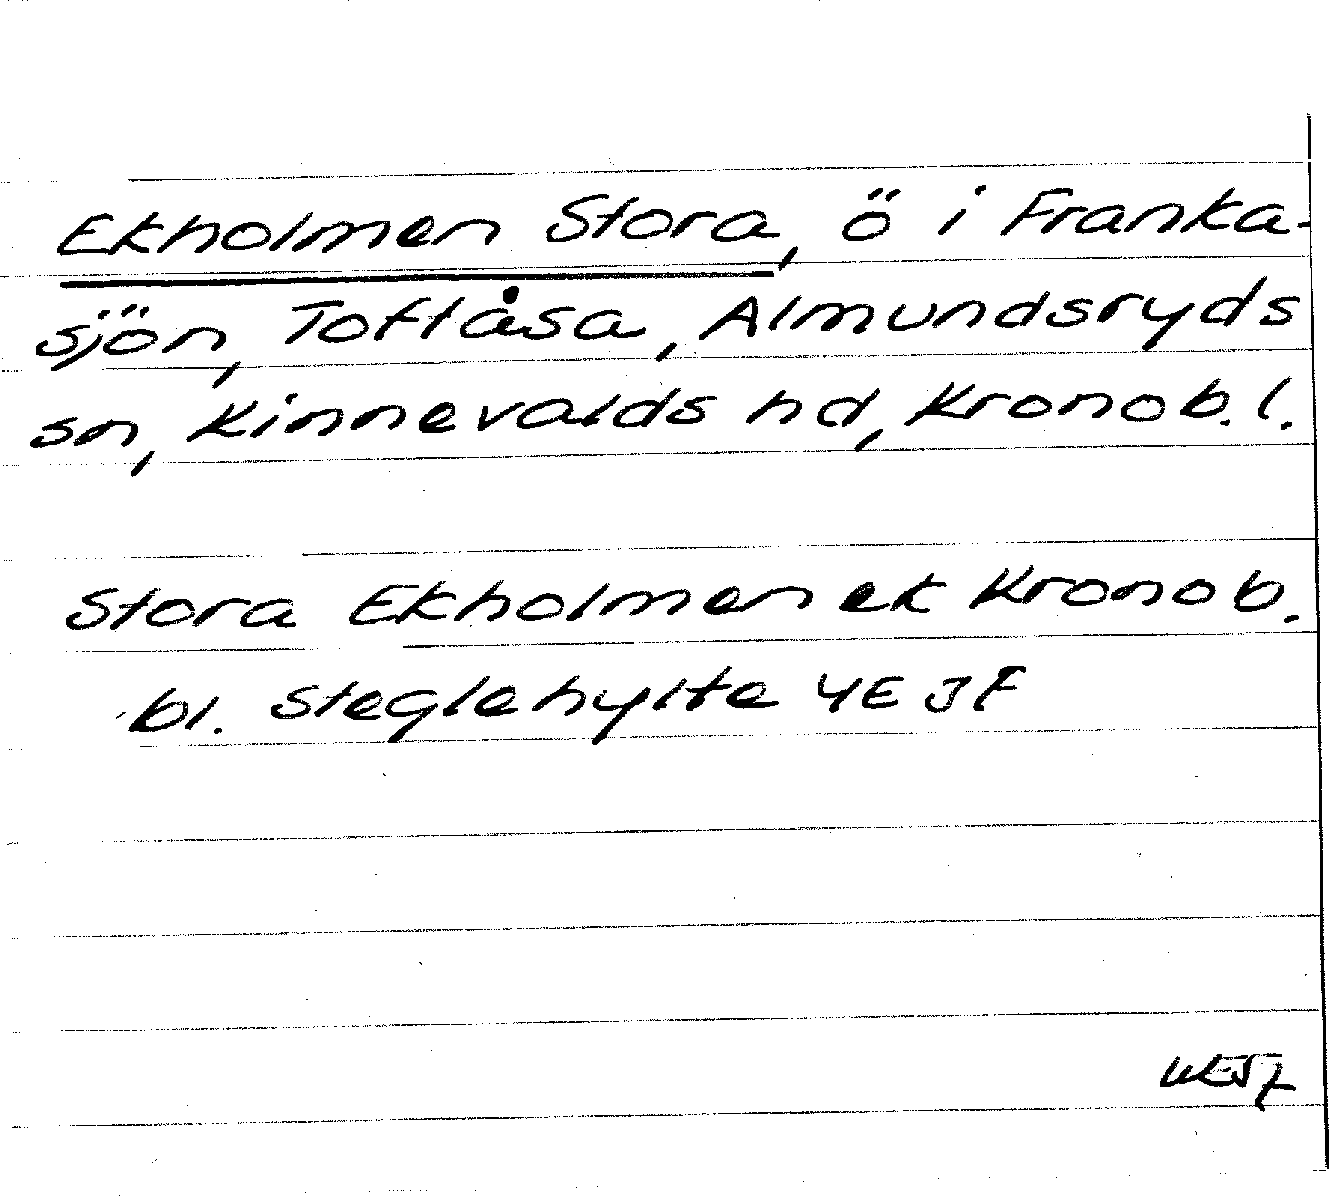 Ekholmen Stora, ö i Franka-
sjön, Toftåsa, Almundsryds
sn, Kinnevalds hd, Kronob. l.
Stora Ekholmen ek Kronob.
bl. Steglehylte 4E JF